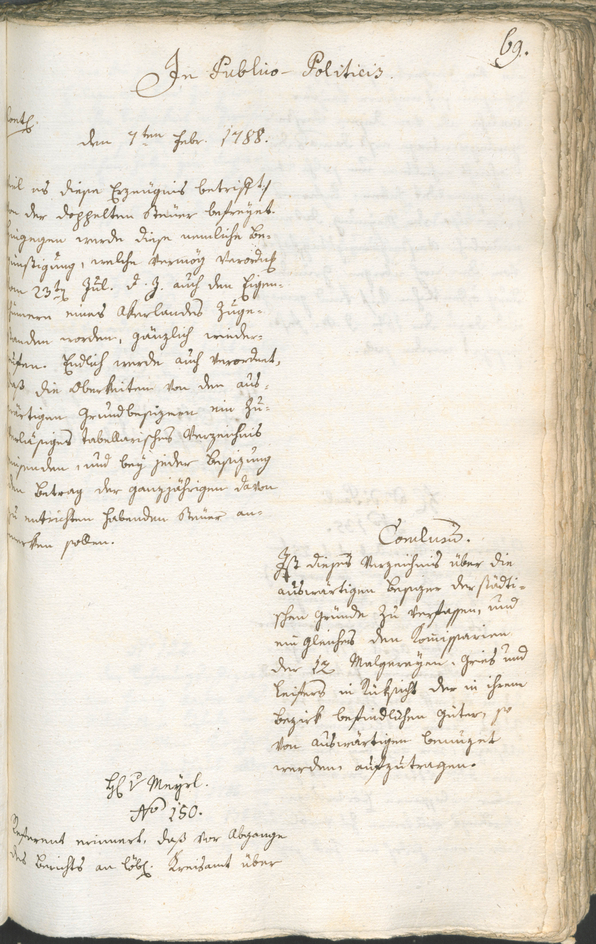 69.
In Publico-Politicis.
den 7ten Febr. 1788.
weil es diese Erzeugnis betrifft,
von der doppelten Steuer befreyet.
hingegen werde diese nemliche Be-
günstigung, welche vermög Verordng
vom 23ten Jul. d. J. auch den Eigen-
thümern eines Akerlandes zuge-
standen worden, gänzlich wieder-
rufen. Endlich werde auch verordnet,
daß die Oberkeiten von den aus-
wärtigen Grundbesizern ein zu-
verläsiges tabellarisches Verzeichnis
einsenden, und bey jeder Besizung
den Betrag der ganzjährigen davon
zu entrichten habenden Steuer an-
merken sollen.
Conclusum.
Ist dieses Verzeichnis über die
auswärtigen Besizer der städti-
schen Gründe zu verfassen, und
ein gleiches den Komissarien
der 12 Malgereyen, Gries und
Leifers in Rüksicht der in ihrem
Bezirk befindlichen Güter, so
von auswärtigen benuzet
werden, aufzutragen.
H v Meyrl.
No 150.
Referent erinnert, daß vor Abgange
des Berichts an löbl. Kreisamt über